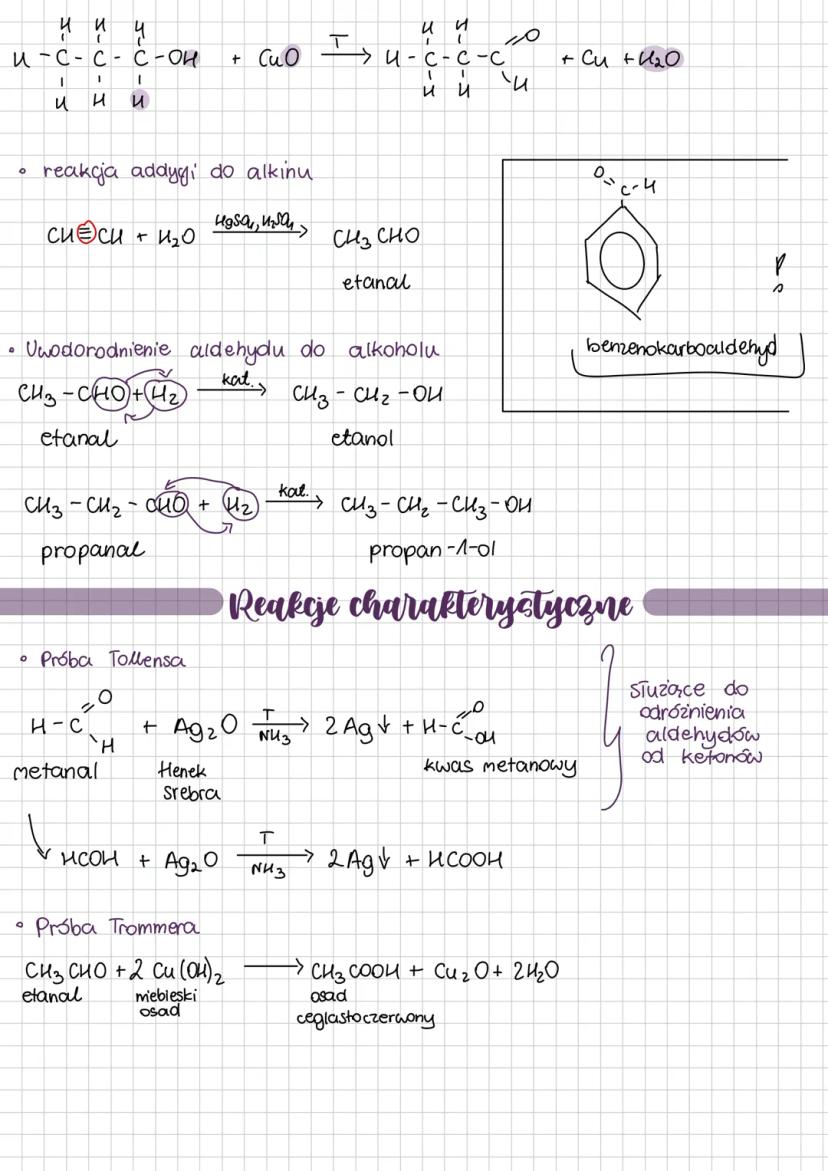 H H H
H - C - C - C - OH + CuO T → H - C - C - C = O + Cu + H2O
H H H H H H
• reakcja addycji do alkinu
CH≡CH + H2O HgSO4, H2SO4 → CH3CHO
etanal
O = C - H
benzenokarboaldehyd
• Uwodorodnienie aldehydu do alkoholu
CH3 - CHO + H2 kat. → CH3 - CH2 - OH
etanal etanol
CH3 - CH2 - CHO + H2 kat. → CH3 - CH2 - CH3 - OH
propanal propan-1-ol
Reakcje charakterystyczne
• Próba Tollensa
służące do
odróżnienia
aldehydów
od ketonów
H - C = O H + Ag2O T NH3 → 2Ag↓ + H - C = O - OH
metanal tlenek kwas metanowy
srebra
HCOH + Ag2O T NH3 → 2Ag↓ + HCOOH
• Próba Trommera
CH3CHO + 2 Cu(OH)2 → CH3COOH + Cu2O + 2H2O
etanal niebieski osad
osad ceglastoczerwony